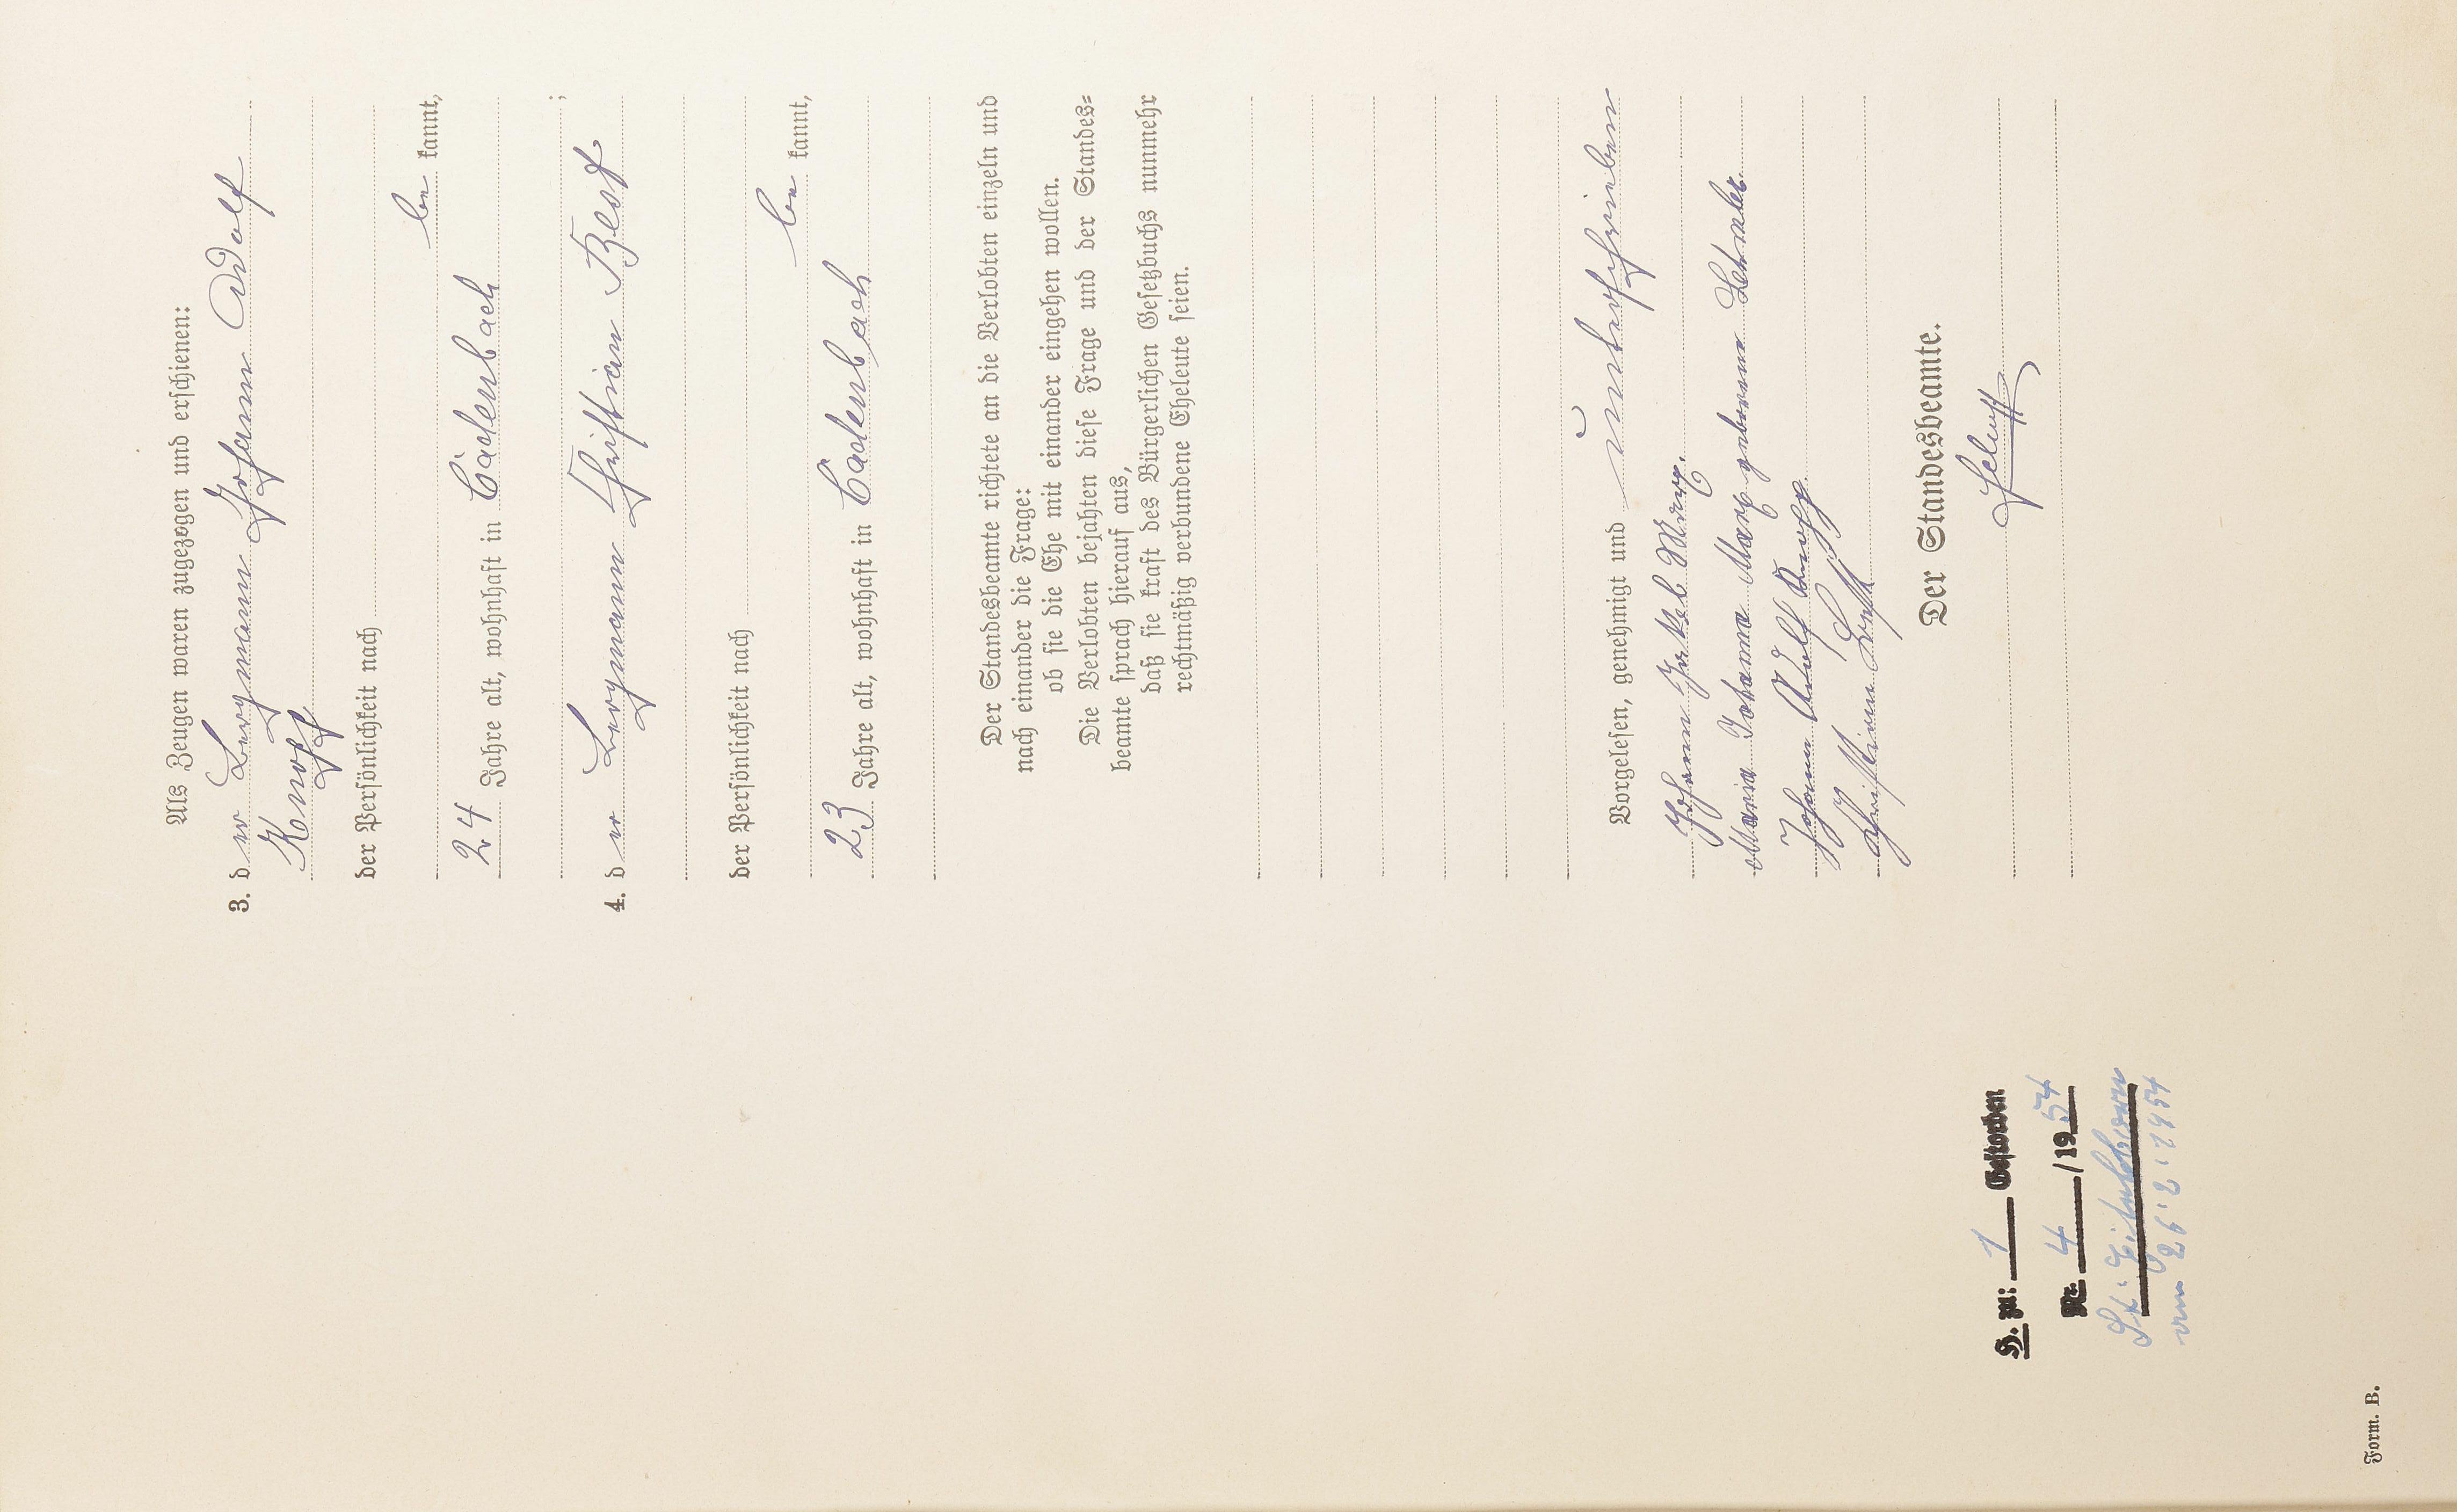 Als Zeugen waren zugezogen und erschienen:
3. der Bergmann Johann Adolf
Knopp
der Persönlichkeit nach
be kannt,
24 Jahre alt, wohnhaft in Cadenbach
;
4. der Bergmann Christian Best
der Persönlichkeit nach
be kannt,
23 Jahre alt, wohnhaft in Cadenbach
Der Standesbeamte richtete an die Verlobten einzeln und
nach einander die Frage:
ob sie die Ehe mit einander eingehen wollen.
Die Verlobten bejahten diese Frage und der Standes=
beamte sprach hierauf aus,
daß sie kraft des Bürgerlichen Gesetzbuchs nunmehr
rechtmäßig verbundene Eheleute seien.
Vorgelesen, genehmigt und unterschrieben
Johann Jakob Marx.
Maria Johanna Marx geborene
Johann Adolf Knopp.
Christian Best
Der Standesbeamte.
H. zu: 1 Gestorben
Nr. 4 /1954
St.
vom 26.2.1954
Form. B.